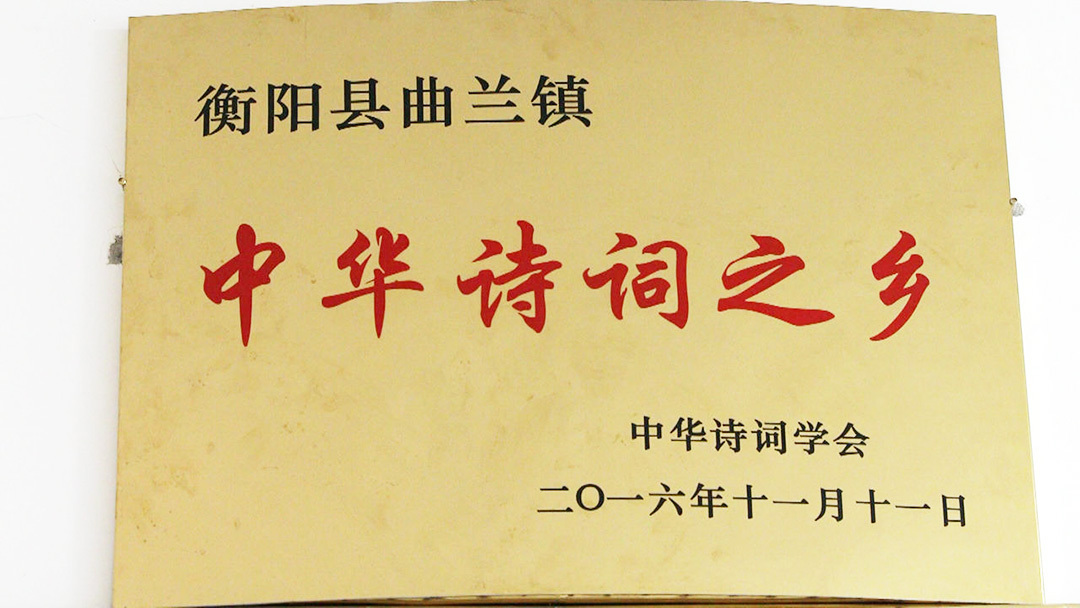 衡阳县曲兰镇
中华诗词之乡
中华诗词学会
二〇一六年十一月十一日